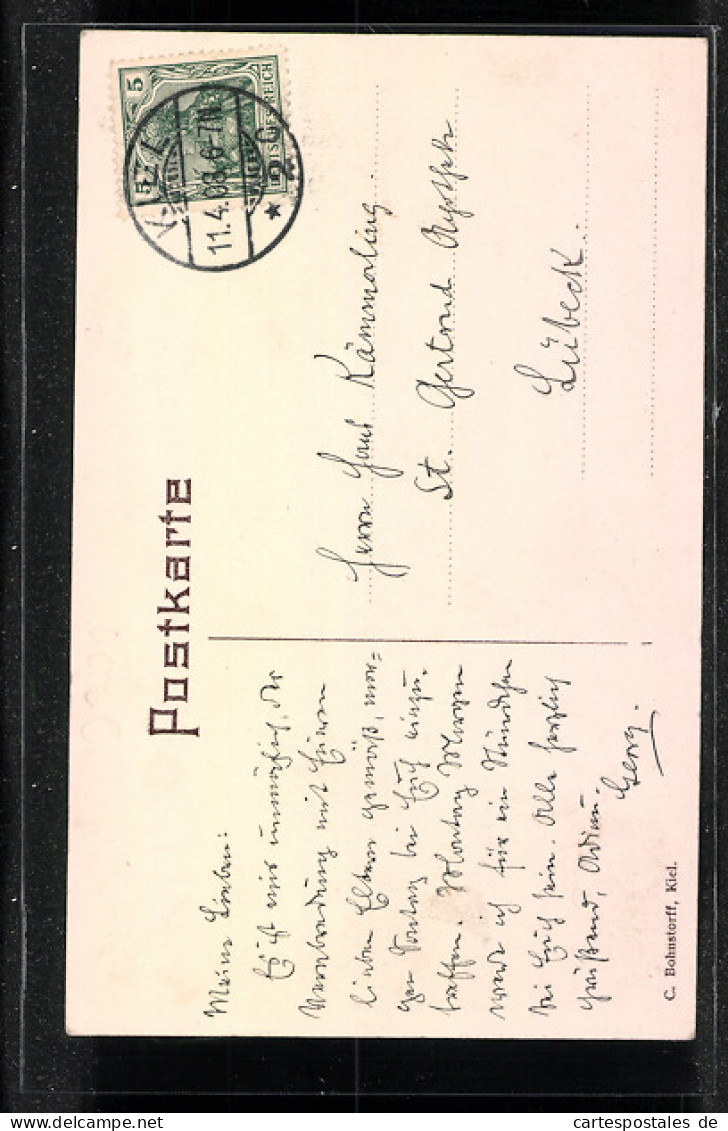 Postkarte
KIEL
11.4.08.6-7N.
* 2 c
5
5
DEUTSCHES REICH
Meine Lieben:
Es ist mir unmöglich, der
Verabredung mit Euren
lieben Eltern gemäß, mor=
gen Sonntag bei Euch einzu-
treffen. Montag Morgen
werde ich für ein Stündchen
bei Euch sein. Alle herzlich
grüßend, Adieu.
Georg.
Herrn Hans Kämmerling
St. Gertrud Apotheke
Lübeck.
C. Bohnstorff, Kiel.
cartespostales de